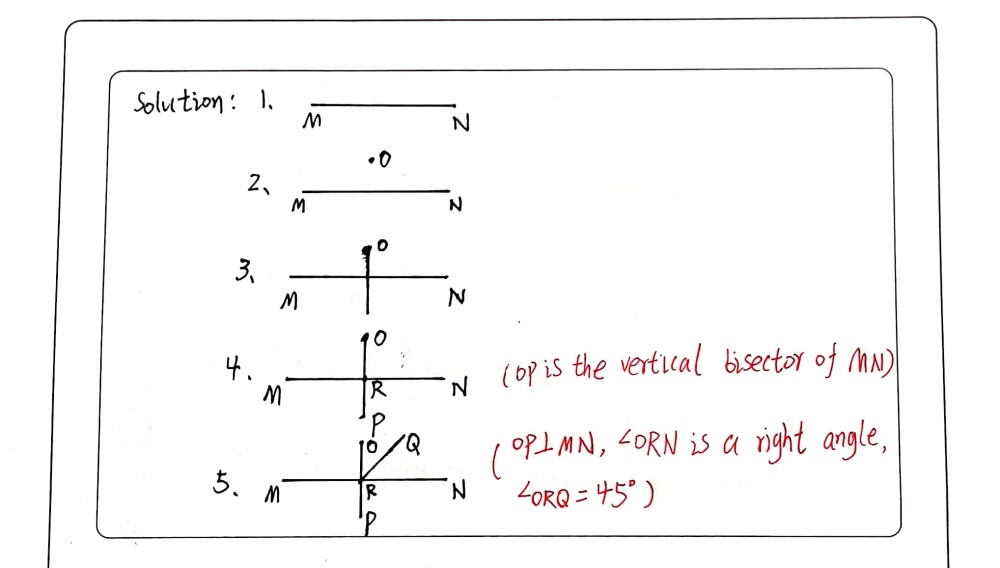 Solution: 1.
M N
·O
2、
M N
O
3、
M N
O
4.
M R N
P
(OP is the vertical bisector of MN)
O Q
5.
M R N
P
(OP⊥MN, ∠ORN is a right angle,
∠ORQ = 45°)